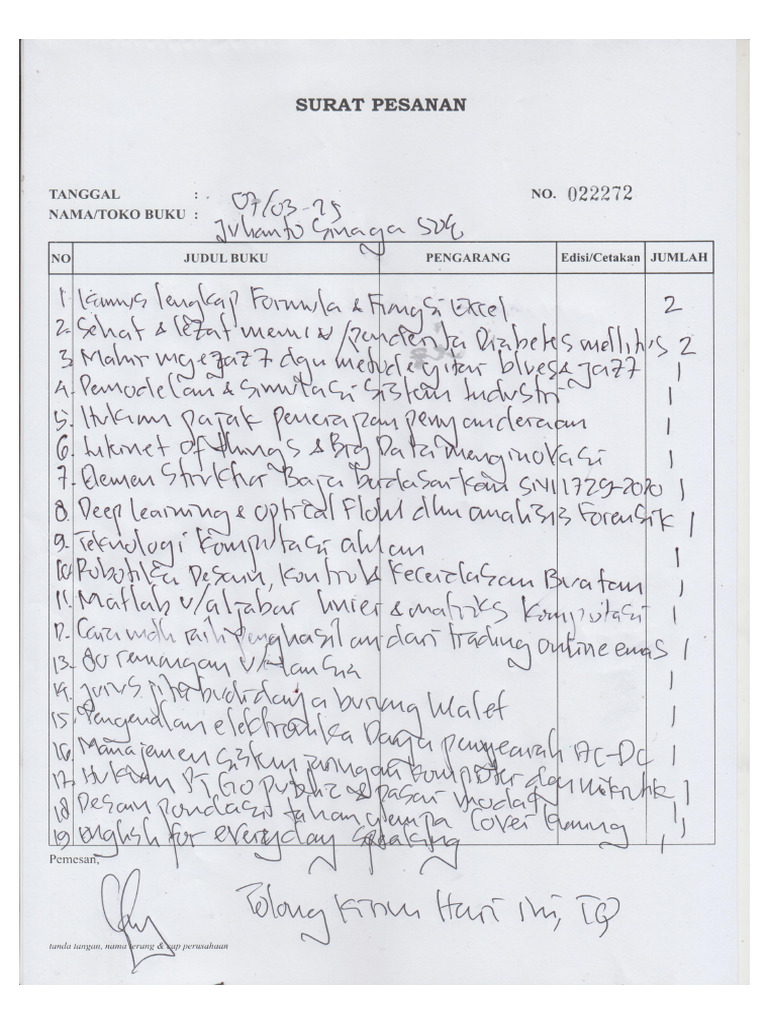 SURAT PESANAN
TANGGAL : 07/03-25 NO. 022272
NAMA/TOKO BUKU : Julianto Sinaga
NO JUDUL BUKU PENGARANG Edisi/Cetakan JUMLAH
1. Kamus lengkap Formula & Fungsi Excel 2
2. Sehat & lezat menu u/penderita Diabetes mellitus 2
3. Mahir mgejazz dgn metode gitar blues & jazz 1
4. Pemodelan & simulasi sistem Industri 1
5. Hukum pajak penerapan penyanderaan 1
6. Internet of things & Big Data menginovasi 1
7. Elemen Struktur Baja berdasarkan SNI 1729-2020 1
8. Deep learning & optical Flow dlm analisis Forensik 1
9. Teknologi komputasi awan 1
10. Robotika Desain, Kontrol & Kecerdasan Buatan 1
11. Matlab u/aljabar linier & matriks komputasi 1
12. Cara mdh raih penghasilan dari trading online emas 1
13. 80 renungan u/Lansia 1
14. Jurus jitu budidaya burung Walet 1
15. Pengenalan elektronika Daya penyearah AC-DC 1
16. Manajemen sistem jaringan komputer dgn mikrotik 1
17. Hukum PT, Go public & pasar modal 1
18 Desain pondasi tahan gempa Cover 1
19 english for everyday speaking 1
Pemesan,
Tolong Kirim Hari ini, TQ
tanda tangan, nama terang & cap perusahaan